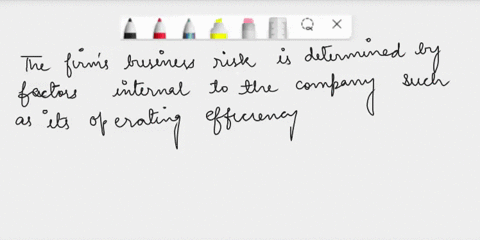 The firm's business risk is determined by
factors internal to the company such
as its operating efficiency